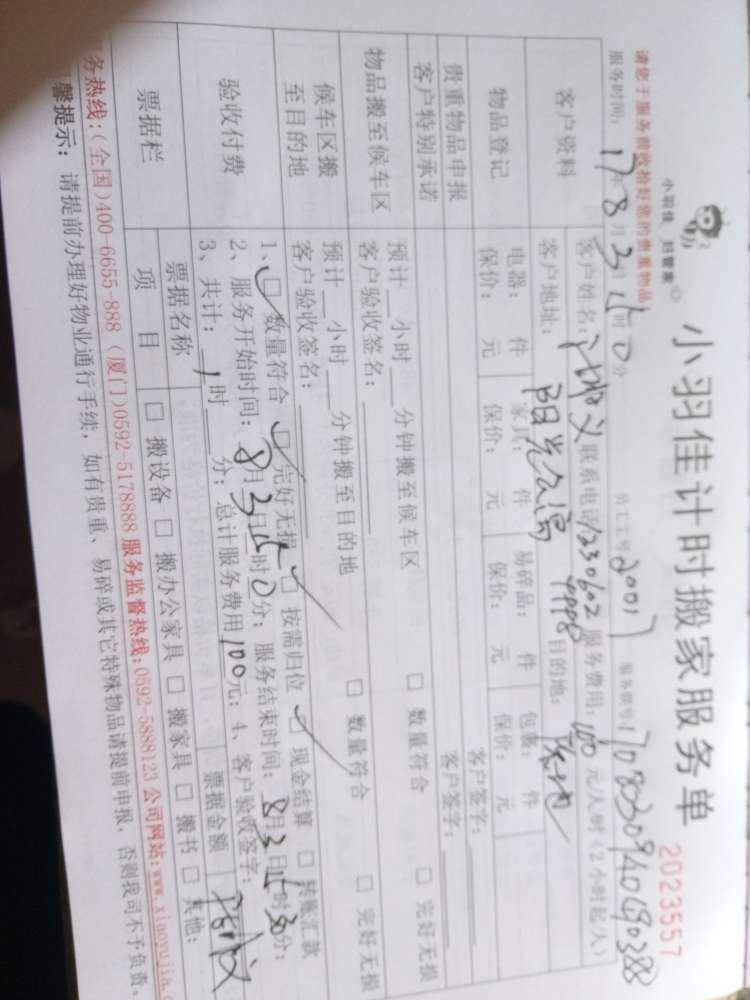 小羽佳 好管家
小羽佳计时搬家服务单
2023557
请您于服务前收拾好您的贵重物品
员工工号: 2001 服务单号:
服务时间: 17年8月3日15时0分
客户资料
客户姓名: 联系电话 服务费用:100元/人/时(2小时起/人)
客户地址: 目的地:
物品登记
电器: 件 家具: 件 易碎品: 件 包装: 件
保价: 元 保价: 元 保价: 元 保价: 元
贵重物品申报 客户签字:
客户特别承诺 客户签字:
物品搬至候车区
预计 小时 分钟搬至候车区 □ 数量符合 □ 完好无损
客户验收签名:
候车区搬至目的地
预计 小时 分钟搬至目的地 □ 数量符合 □ 完好无损
客户验收签名:
验收付费
1、□ 数量符合 □ 完好无损 □ 按需归位 □ 现金结算 □ 转账汇款
2、服务开始时间: 8月3日15时0分; 服务结束时间: 8月3日15时30分;
3、共计: 1时 分; 总计服务费用100元; 4、客户验收签字:
票据栏
票据名称 票据金额
项目 □ 搬设备 □ 搬办公家具 □ 搬家具 □ 搬书 □ 其他:
务热线:(全国)400-6655-888 (厦门)0592-5178888 服务监督热线:0592-5888123 公司网站:www.xiaoyujia.c
馨提示: 请提前办理好物业通行手续, 如有贵重、易碎或其它特殊物品请提前申报, 否则我司不予负责。